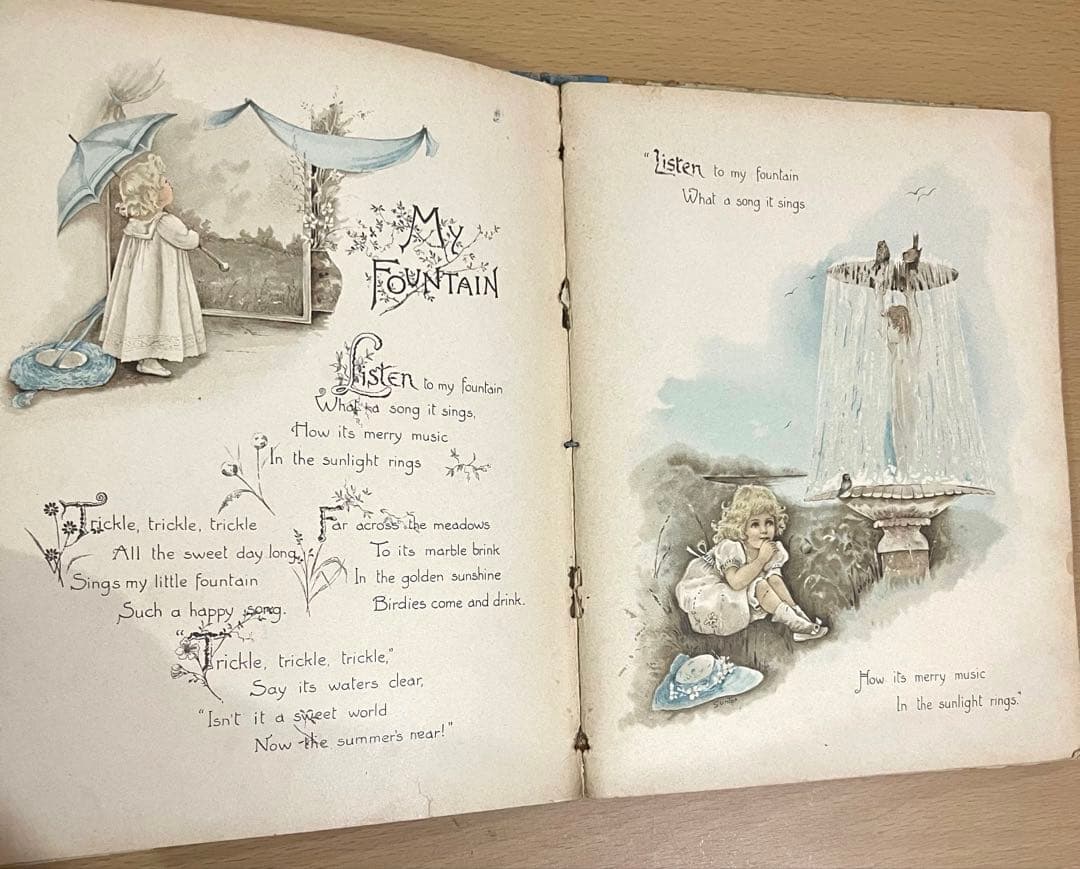 My
Fountain
Listen to my fountain
What a song it sings,
How its merry music
In the sunlight rings
Trickle, trickle, trickle
All the sweet day long,
Sings my little fountain
Such a happy song.
Far across the meadows
To its marble brink
In the golden sunshine
Birdies come and drink.
"Trickle, trickle, trickle,"
Say its waters clear,
"Isn't it a sweet world
Now the summer's near!"
"Listen to my fountain
What a song it sings
How its merry music
In the sunlight rings."